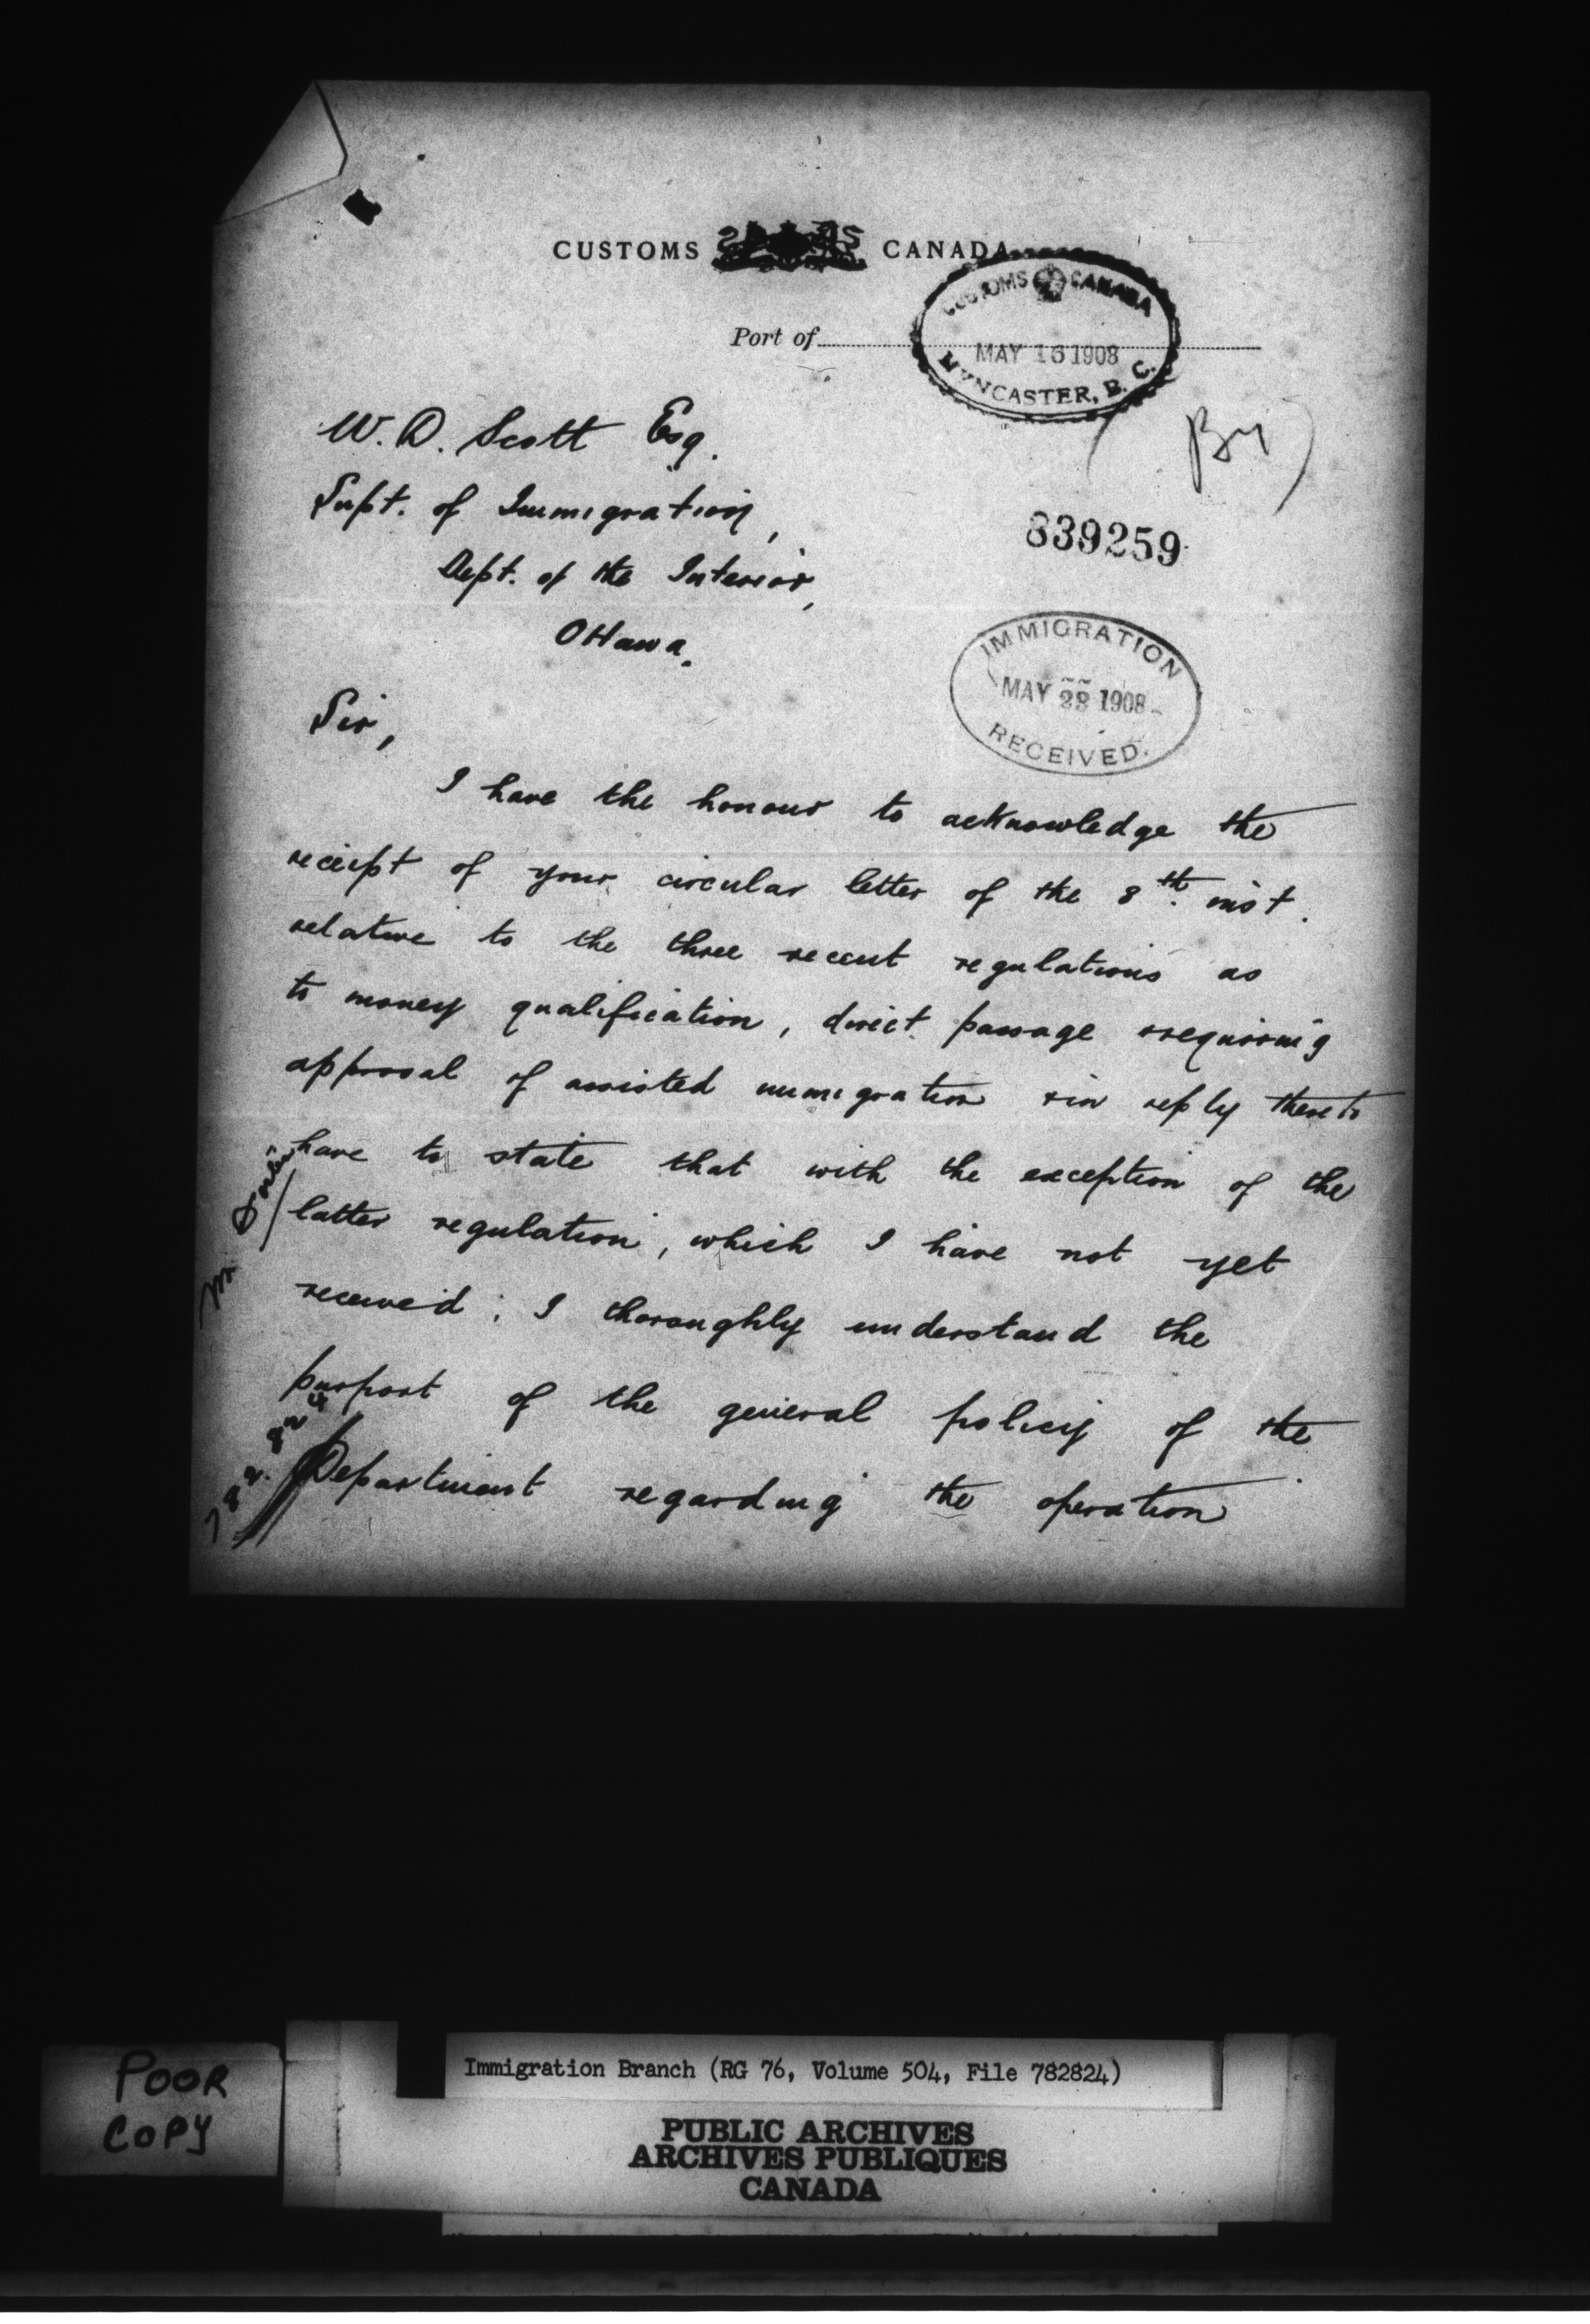 CUSTOMS CANADA
Port of
CUSTOMS CANADA
MAY 16 1908
MYNCASTER, B. C.
W. D. Scott Esq.
Supt. of Immigration,
Dept. of the Interior,
Ottawa.
839259
IMMIGRATION
MAY 1908
RECEIVED.
Sir,
I have the honour to acknowledge the
receipt of your circular letter of the 8th. inst.
relative to the three recent regulations as
to money qualification, direct passage & requiring
approval of assisted immigration & in reply thereto
have to state that with the exception of the
latter regulation, which I have not yet
received; I thoroughly understand the
purport of the general policy of the
Department regarding the operation
Mr.
782.824
POOR
COPY
Immigration Branch (RG 76, Volume 504, File 782824)
PUBLIC ARCHIVES
ARCHIVES PUBLIQUES
CANADA